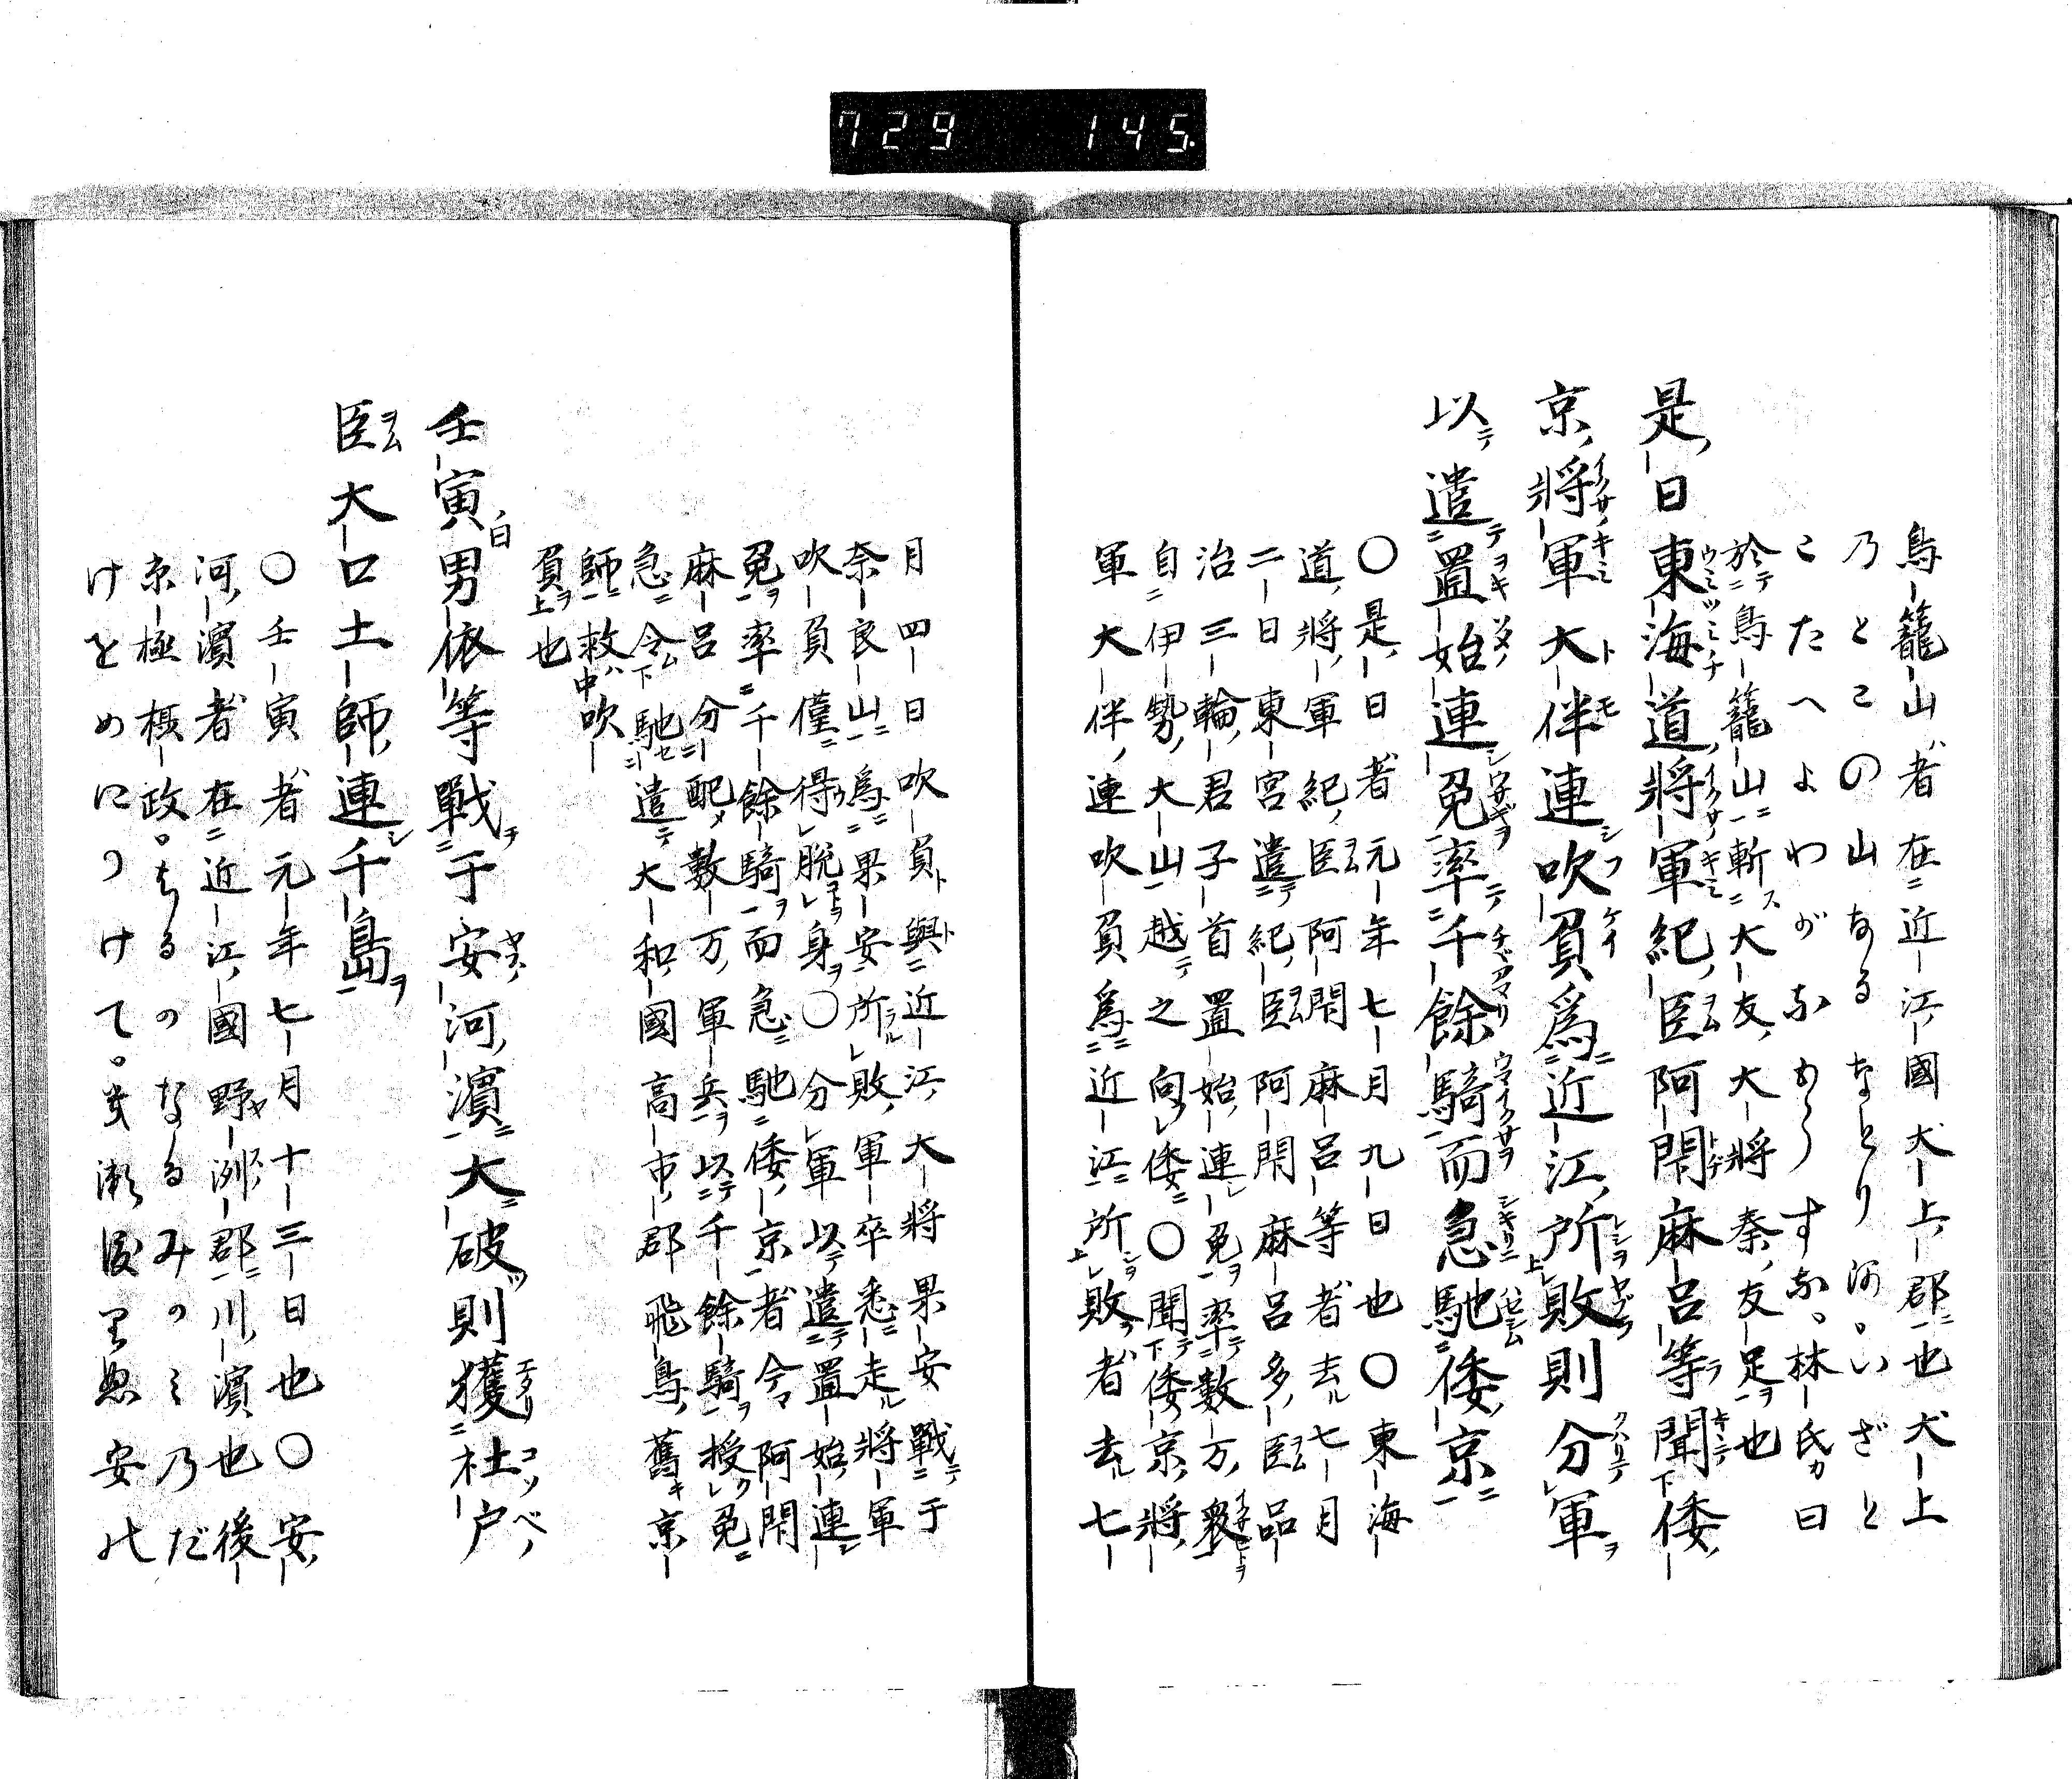 729 145
鳥籠山者在近江國犬上郡也犬上
乃とこの山なるなとり河。いざと
こたへよわがなもらすな。林氏曰
於鳥籠山斬大友大將秦友足也
是日東海道將軍紀臣阿閇麻呂等聞倭
京將軍大伴連吹負爲近江所敗則分軍
以遣置始連菟率千餘騎而急馳倭京
〇是日者元年七月九日也〇東海
道將軍紀臣阿閇麻呂等者去七月
二日東宮遣紀臣阿閇麻呂多臣品
治三輪君子首置始連菟率數万衆
自伊勢大山越之向倭〇聞倭京將
軍大伴連吹負爲近江所敗者去七
月四日吹負與近江大將果安戰于
奈良山爲果安所敗軍卒悉走將軍
吹負僅得脫身〇分軍以遣置始連
菟率千餘騎而急馳倭京者今阿閇
麻呂分配數万軍兵以千餘騎授菟
急令馳遣大和國高市郡飛鳥舊京
師救吹
負也
壬寅男依等戰于安河濱大破則獲社戶
臣大口土師連千島
〇壬寅者元年七月十三日也〇安
河濱者在近江國野洲郡川濱也後
京極攝政。はるのなるみのみ乃だ
けをとめにつけて。